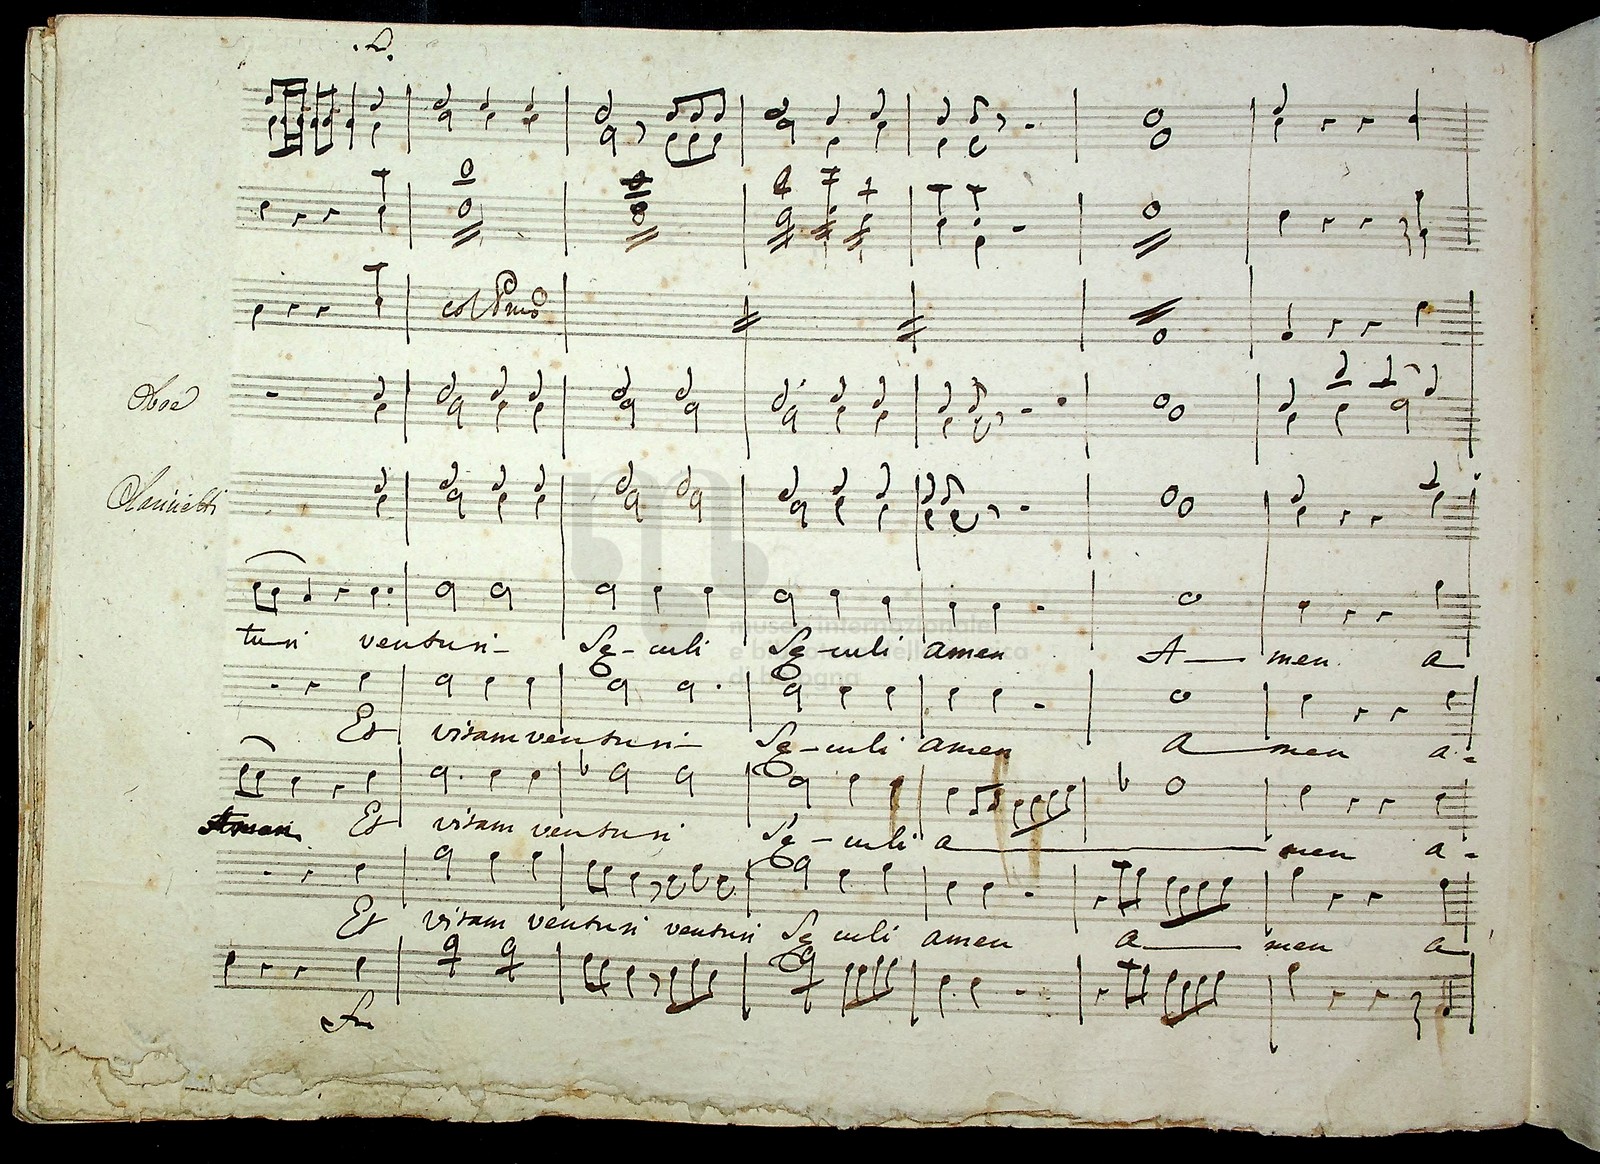 col Pmo
Oboe
Clarinetti
turi venturi Se-culi Se-culi amen A men a
Et vitam venturi Se-culi amen a men a
Et vitam venturi Se-culi a men a
Et vitam venturi venturi Se culi amen a men a
museo internazionale
e biblioteca della musica
di bologna